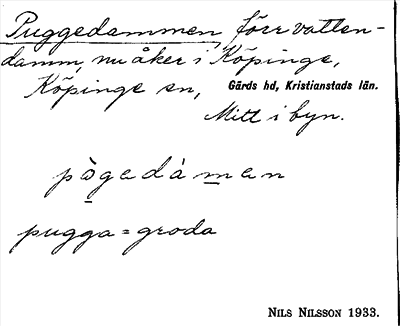 Puggedammen, förr vatten-
damm, nu åker i Köpinge,
Köpinge sn, Gärds hd, Kristianstads län.
Mitt i byn.
pògedàmen
pugga = groda
NILS NILSSON 1933.